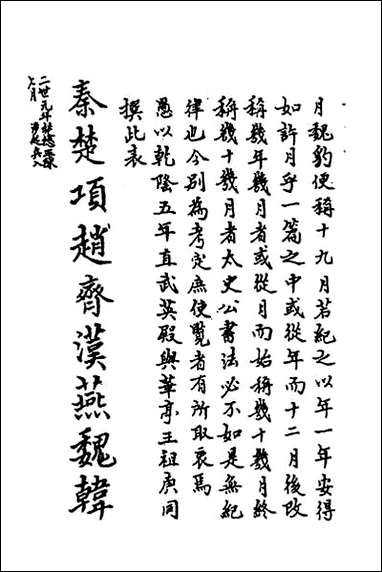 月魏豹便稱十九月若紀之以年一年安得
如許月乎一篇之中或從年而十二月後改
稱幾年幾月者或從月而始稱幾十幾月終
稱幾十幾月者太史公書法必不如是無紀
律也今別為考定庶使覽者有所取衷焉
愚以乾隆五年直武英殿與華亭王祖庚同
撰此表
秦楚項趙齊漢燕魏韓
二世元年
七月